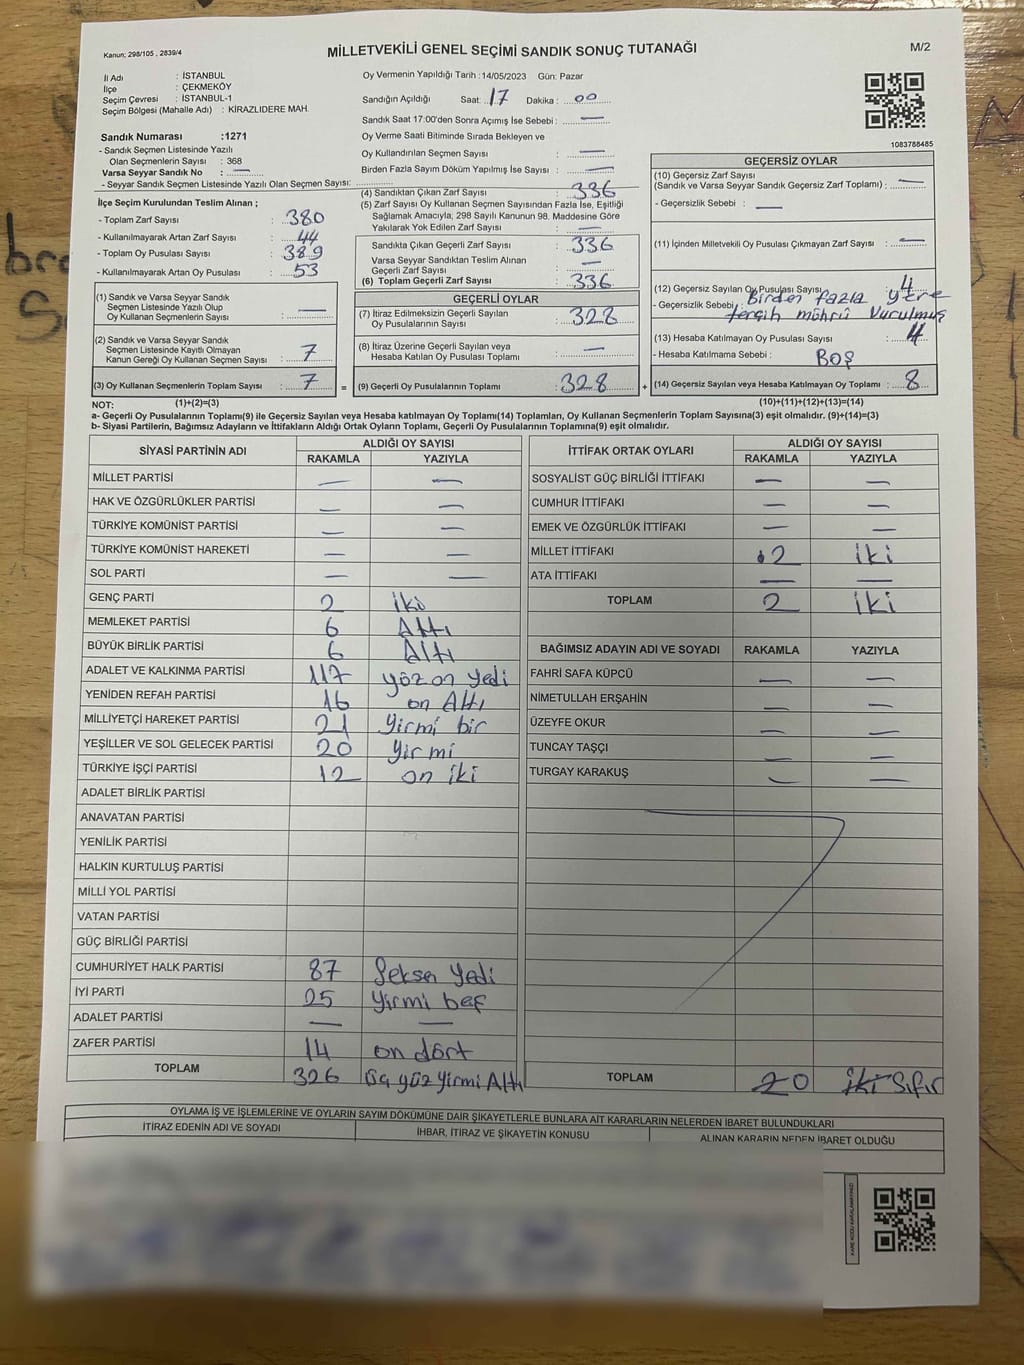 Kanun; 298/105 , 2839/4
MİLLETVEKİLİ GENEL SEÇİMİ SANDIK SONUÇ TUTANAĞI
M/2
İl Adı : İSTANBUL
İlçe : ÇEKMEKÖY
Seçim Çevresi : İSTANBUL-1
Seçim Bölgesi (Mahalle Adı) : KİRAZLIDERE MAH.
Sandık Numarası :1271
- Sandık Seçmen Listesinde Yazılı
Olan Seçmenlerin Sayısı : 368
Varsa Seyyar Sandık No : —
- Seyyar Sandık Seçmen Listesinde Yazılı Olan Seçmen Sayısı:
İlçe Seçim Kurulundan Teslim Alınan ;
- Toplam Zarf Sayısı : 380
- Kullanılmayarak Artan Zarf Sayısı : 44
- Toplam Oy Pusulası Sayısı : 389
- Kullanılmayarak Artan Oy Pusulası : 53
(1) Sandık ve Varsa Seyyar Sandık
Seçmen Listesinde Yazılı Olup
Oy Kullanan Seçmenlerin Sayısı : —
(2) Sandık ve Varsa Seyyar Sandık
Seçmen Listesinde Kayıtlı Olmayan
Kanun Gereği Oy Kullanan Seçmen Sayısı : 7
(3) Oy Kullanan Seçmenlerin Toplam Sayısı : 7
(1)+(2)=(3)
Oy Vermenin Yapıldığı Tarih :14/05/2023 Gün: Pazar
Sandığın Açıldığı Saat: 17 Dakika : 00
Sandık Saat 17:00'den Sonra Açımış Ise Sebebi : —
Oy Verme Saati Bitiminde Sırada Bekleyen ve
Oy Kullandırılan Seçmen Sayısı : —
Birden Fazla Sayım Döküm Yapılmış İse Sayısı : —
(4) Sandıktan Çıkan Zarf Sayısı : 336
(5) Zarf Sayısı Oy Kullanan Seçmen Sayısından Fazla İse, Eşitliği
Sağlamak Amacıyla, 298 Sayılı Kanunun 98. Maddesine Göre
Yakılarak Yok Edilen Zarf Sayısı : —
Sandıkta Çıkan Geçerli Zarf Sayısı : 336
Varsa Seyyar Sandıktan Teslim Alınan
Geçerli Zarf Sayısı : —
(6) Toplam Geçerli Zarf Sayısı : 336
GEÇERLİ OYLAR
(7) İtiraz Edilmeksizin Geçerli Sayılan
Oy Pusulalarının Sayısı : 328
(8) İtiraz Üzerine Geçerli Sayılan veya
Hesaba Katılan Oy Pusulası Toplamı : —
= (9) Geçerli Oy Pusulalarının Toplamı : 328 +
1083788485
GEÇERSİZ OYLAR
(10) Geçersiz Zarf Sayısı
(Sandık ve Varsa Seyyar Sandık Geçersiz Zarf Toplamı) : —
- Geçersizlik Sebebi : —
(11) İçinden Milletvekili Oy Pusulası Çıkmayan Zarf Sayısı : —
(12) Geçersiz Sayılan Oy Pusulası Sayısı : 4
- Geçersizlik Sebebi Birden fazla yere
tercih mührü vurulmuş
(13) Hesaba Katılmayan Oy Pusulası Sayısı : 4
- Hesaba Katılmama Sebebi : BOŞ
(14) Geçersiz Sayılan veya Hesaba Katılmayan Oy Toplamı : 8
(10)+(11)+(12)+(13)=(14)
NOT:
a- Geçerli Oy Pusulalarının Toplamı(9) ile Geçersiz Sayılan veya Hesaba katılmayan Oy Toplamı(14) Toplamları, Oy Kullanan Seçmenlerin Toplam Sayısına(3) eşit olmalıdır. (9)+(14)=(3)
b- Siyasi Partilerin, Bağımsız Adayların ve İttifakların Aldığı Ortak Oyların Toplamı, Geçerli Oy Pusulalarının Toplamına(9) eşit olmalıdır.
SİYASİ PARTİNİN ADI ALDIĞI OY SAYISI
RAKAMLA YAZIYLA
MİLLET PARTİSİ — —
HAK VE ÖZGÜRLÜKLER PARTİSİ — —
TÜRKİYE KOMÜNİST PARTİSİ — —
TÜRKİYE KOMÜNİST HAREKETİ — —
SOL PARTİ — —
GENÇ PARTİ 2 iki
MEMLEKET PARTİSİ 6 Altı
BÜYÜK BİRLİK PARTİSİ 6 Altı
ADALET VE KALKINMA PARTİSİ 117 yüz on yedi
YENİDEN REFAH PARTİSİ 16 on Altı
MİLLİYETÇİ HAREKET PARTİSİ 21 yirmi bir
YEŞİLLER VE SOL GELECEK PARTİSİ 20 yirmi
TÜRKİYE İŞÇİ PARTİSİ 12 on iki
ADALET BİRLİK PARTİSİ
ANAVATAN PARTİSİ
YENİLİK PARTİSİ
HALKIN KURTULUŞ PARTİSİ
MİLLİ YOL PARTİSİ
VATAN PARTİSİ
GÜÇ BİRLİĞİ PARTİSİ
CUMHURİYET HALK PARTİSİ 87 Seksen yedi
İYİ PARTİ 25 yirmi beş
ADALET PARTİSİ — —
ZAFER PARTİSİ 14 on dört
TOPLAM 326 üç yüz yirmi Altı
İTTİFAK ORTAK OYLARI ALDIĞI OY SAYISI
RAKAMLA YAZIYLA
SOSYALİST GÜÇ BİRLİĞİ İTTİFAKI — —
CUMHUR İTTİFAKI — —
EMEK VE ÖZGÜRLÜK İTTİFAKI — —
MİLLET İTTİFAKI 2 iki
ATA İTTİFAKI — —
TOPLAM 2 iki
BAĞIMSIZ ADAYIN ADI VE SOYADI RAKAMLA YAZIYLA
FAHRİ SAFA KÜPCÜ — —
NİMETULLAH ERŞAHİN — —
ÜZEYFE OKUR — —
TUNCAY TAŞÇI — —
TURGAY KARAKUŞ — —
TOPLAM 20 iki Sıfır
OYLAMA İŞ VE İŞLEMLERİNE VE OYLARIN SAYIM DÖKÜMÜNE DAİR ŞİKAYETLERLE BUNLARA AİT KARARLARIN NELERDEN İBARET BULUNDUKLARI
İTİRAZ EDENİN ADI VE SOYADI İHBAR, İTİRAZ VE ŞİKAYETİN KONUSU ALINAN KARARIN NEDEN İBARET OLDUĞU